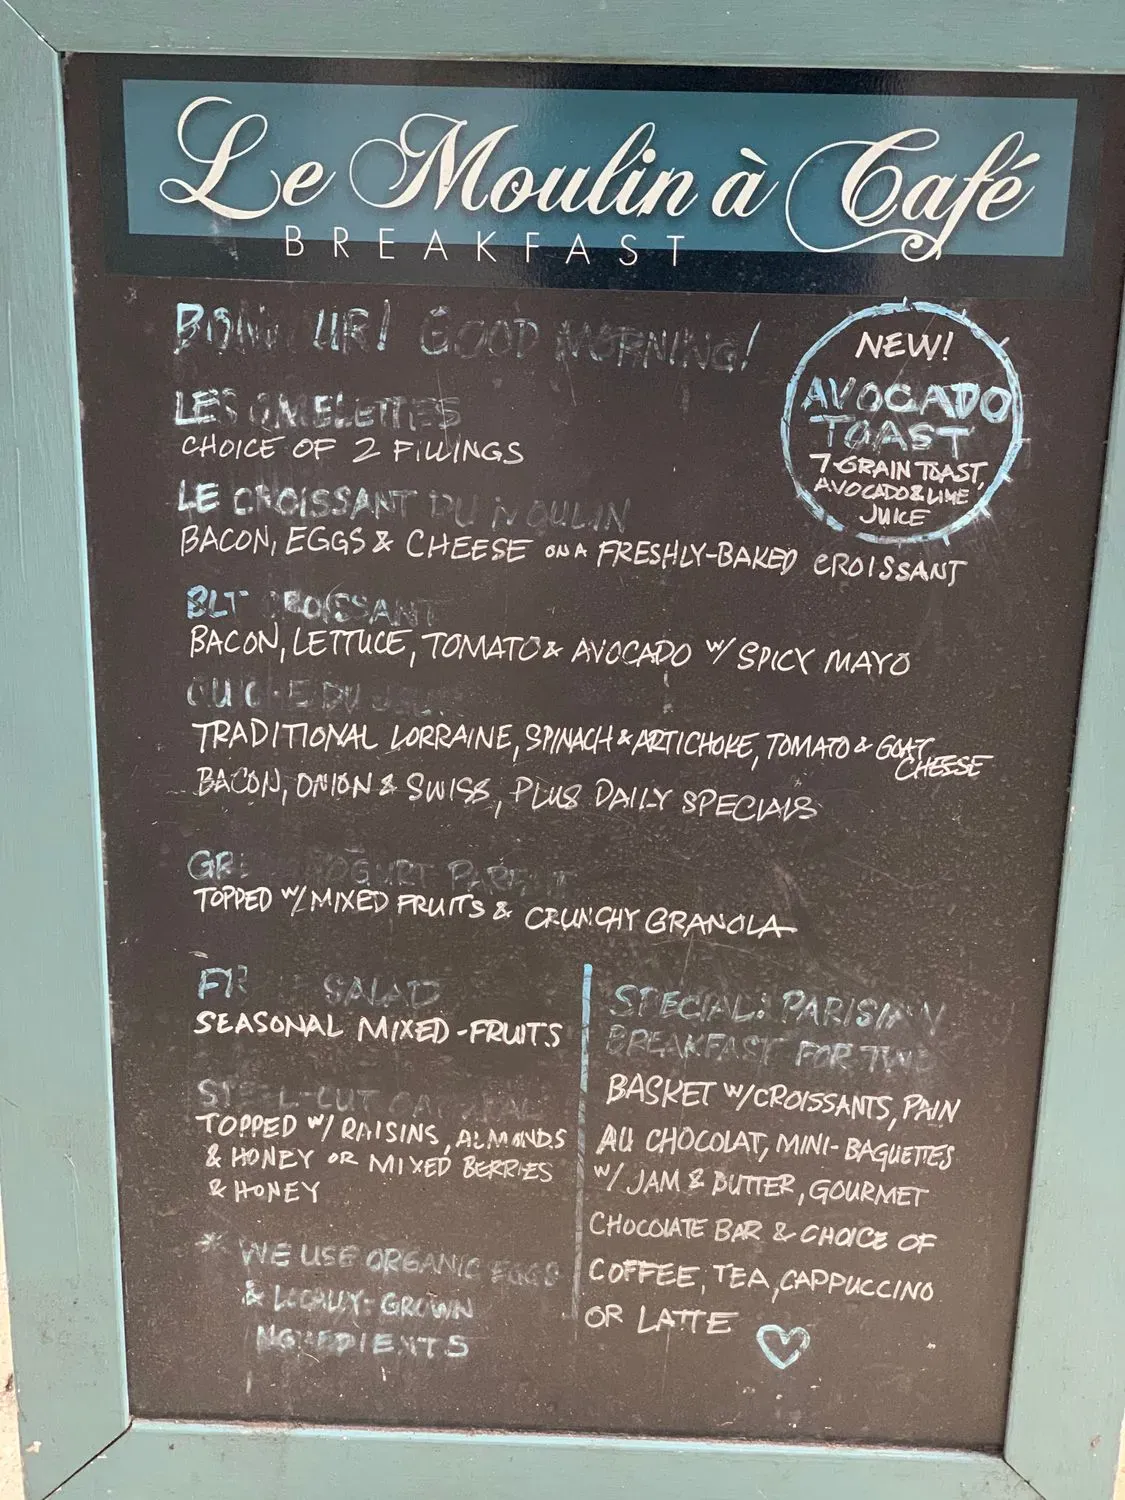 Le Moulin à Café
BREAKFAST
BONJOUR! GOOD MORNING!
NEW!
AVOCADO
TOAST
7-GRAIN TOAST,
AVOCADO & LIME
JUICE
LES OMELETTES
CHOICE OF 2 FILLINGS
LE CROISSANT DU MOULIN
BACON, EGGS & CHEESE ON A FRESHLY-BAKED CROISSANT
BLT CROISSANT
BACON, LETTUCE, TOMATO & AVOCADO W/ SPICY MAYO
QUICHE DU JOUR
TRADITIONAL LORRAINE, SPINACH & ARTICHOKE, TOMATO & GOAT
CHEESE
BACON, ONION & SWISS, PLUS DAILY SPECIALS
GREEK YOGURT PARFAIT
TOPPED W/ MIXED FRUITS & CRUNCHY GRANOLA
FRUIT SALAD
SEASONAL MIXED-FRUITS
STEEL-CUT OATMEAL
TOPPED W/ RAISINS, ALMONDS
& HONEY OR MIXED BERRIES
& HONEY
* WE USE ORGANIC EGGS
& LOCALLY-GROWN
INGREDIENTS
SPECIAL: PARISIAN
BREAKFAST FOR TWO
BASKET W/ CROISSANTS, PAIN
AU CHOCOLAT, MINI-BAGUETTES
W/ JAM & BUTTER, GOURMET
CHOCOLATE BAR & CHOICE OF
COFFEE, TEA, CAPPUCCINO
OR LATTE